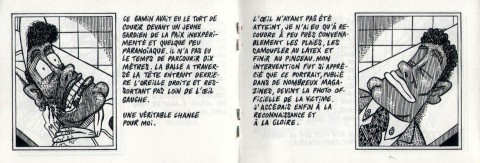 CE GAMIN AVAIT EU LE TORT DE
COURIR DEVANT UN JEUNE
GARDIEN DE LA PAIX INEXPÉRI-
MENTÉ ET QUELQUE PEU
PARANOÏAQUE, IL N'A PAS EU
LE TEMPS DE PARCOURIR DIX
MÈTRES, LA BALLE A TRAVER-
SÉ LA TÊTE ENTRANT DERRIÈ-
RE L'OREILLE DROITE ET RES-
SORTANT PAS LOIN DE L'ŒIL
GAUCHE.
UNE VÉRITABLE CHANCE
POUR MOI.
L'ŒIL N'AYANT PAS ÉTÉ
ATTEINT, JE N'AI EU QU'À RE-
COUDRE À PEU PRÈS CONVENA-
BLEMENT LES PLAIES, LES
CAMOUFLER AU LATEX ET
FINIR AU PINCEAU. MON
INTERVENTION FUT SI APPRÉ-
CIÉE QUE CE PORTRAIT, PUBLIÉ
DANS DE NOMBREUX MAGA-
ZINES, DEVINT LA PHOTO OF-
FICIELLE DE LA VICTIME.
J'ACCÉDAIS ENFIN À LA
RECONNAISSANCE ET
À LA GLOIRE.